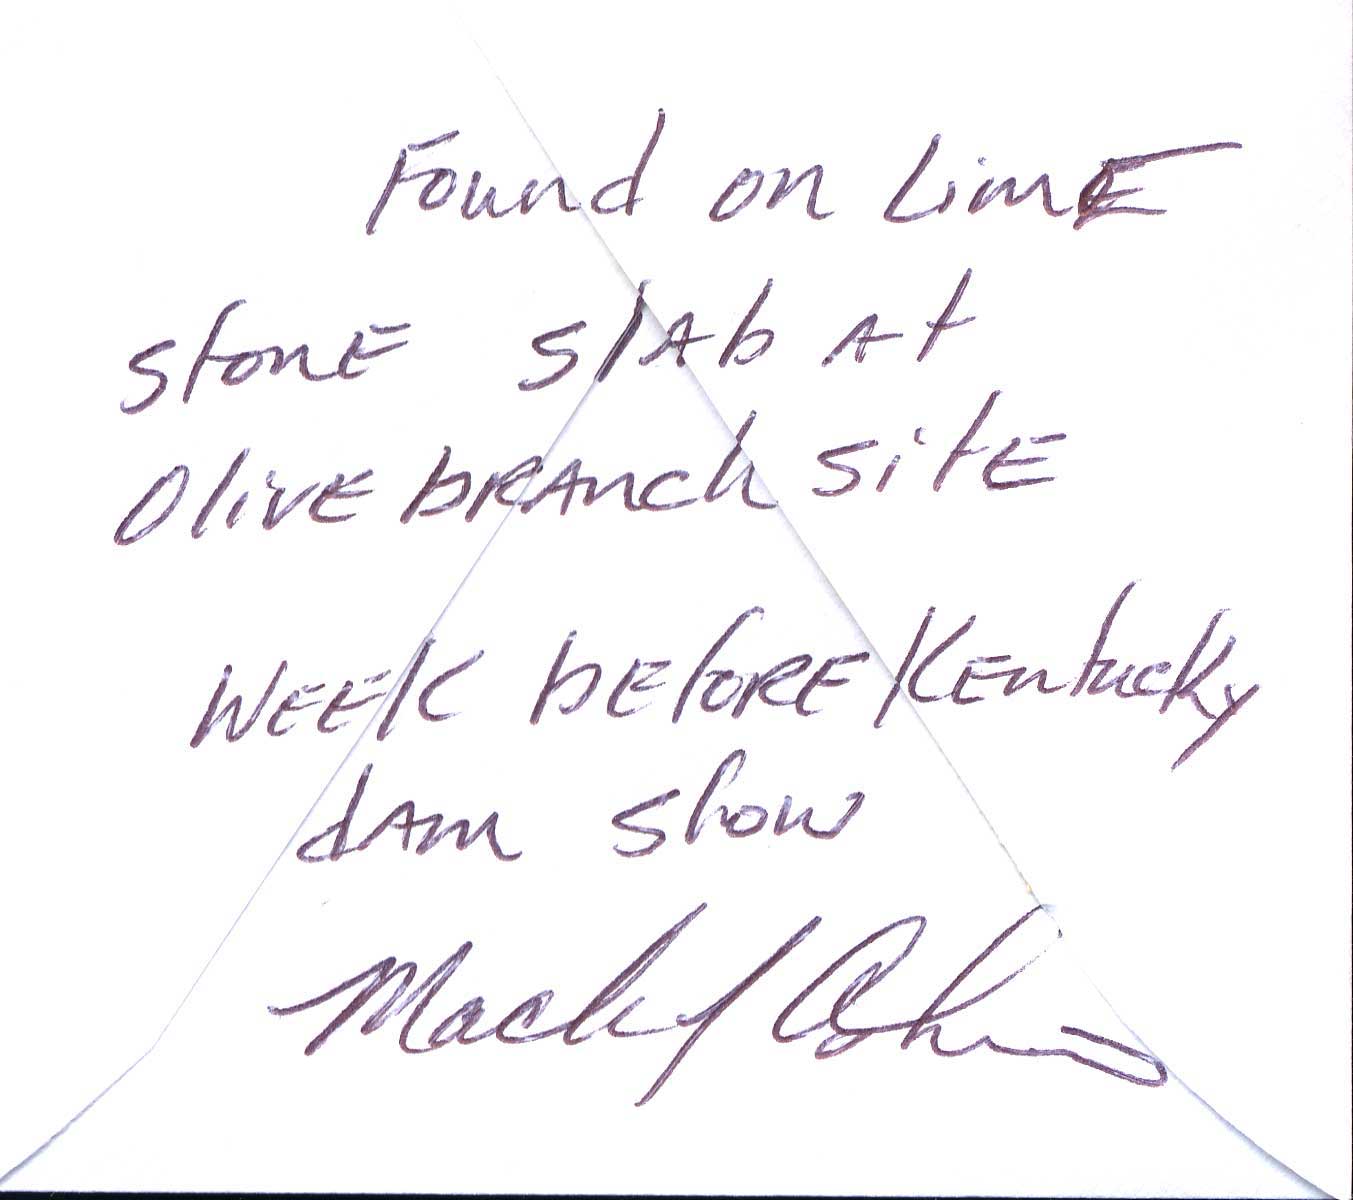 Found on LimE
stonE slAb At
OlivE bRAnch sitE
WEEK bEfoRE KEntucky
dAm show